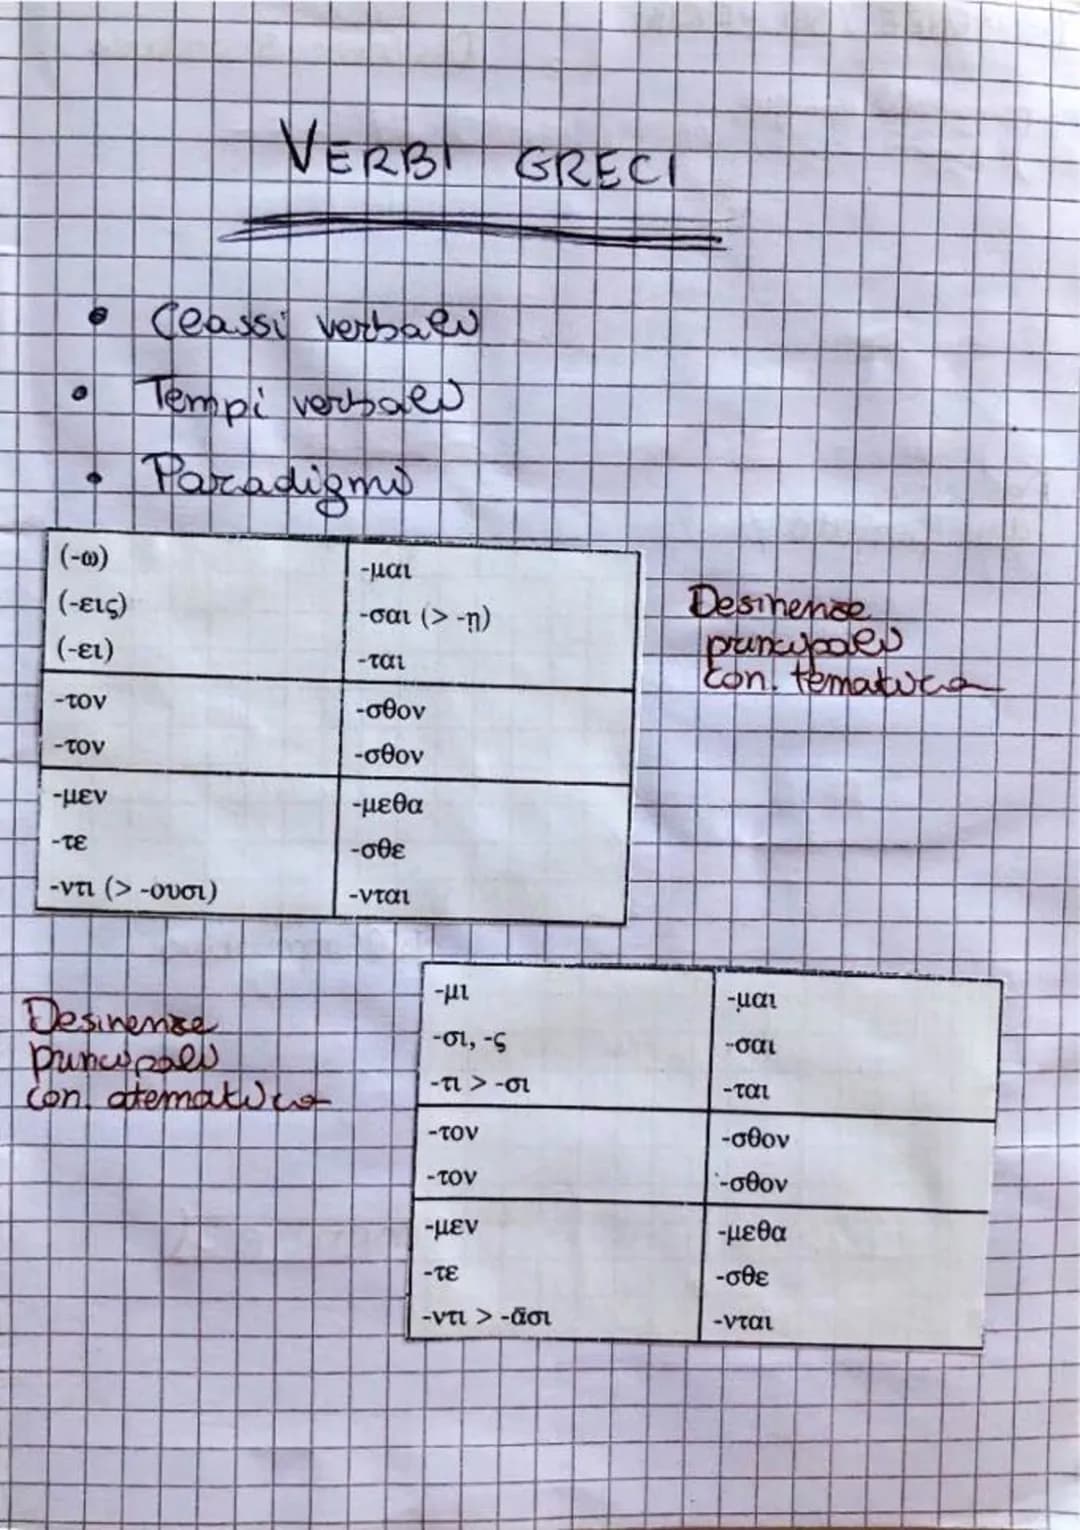 VERBI GRECI
• Classi verbali
• Tempi verbali
• Paradigmi
(-ω) -μαι
(-εις) -σαι (> -η)
(-ει) -ται
-τον -σθον
-τον -σθον
-μεν -μεθα
-τε -σθε
-ντι (> -ουσι) -νται
Desinenze
principali
con. tematica
Desinenze
principali
con. atematica
-μι -μαι
-σι, -ς -σαι
-τι > -σι -ται
-τον -σθον
-τον -σθον
-μεν -μεθα
-τε -σθε
-ντι > -ᾱσι -νται